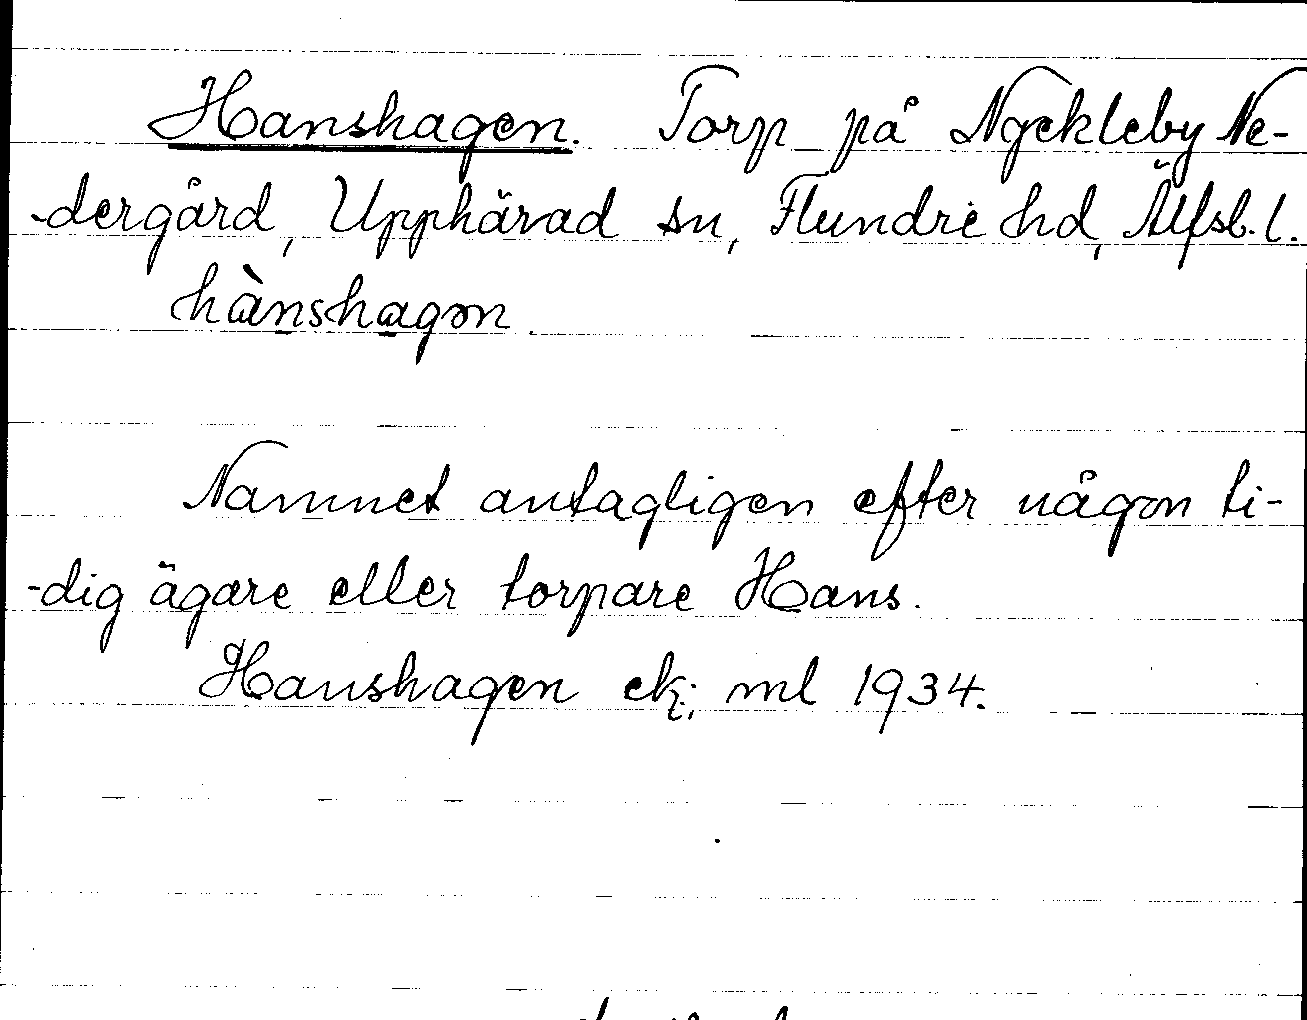 Hanshagen. Torp på Nyckleby Ne-
-dergård, Upphärad sn, Flundre hd, Älfsb. l.
hànshagən
Namnet antagligen efter någon ti-
-dig ägare eller torpare Hans.
Hanshagen ek; ml 1934.